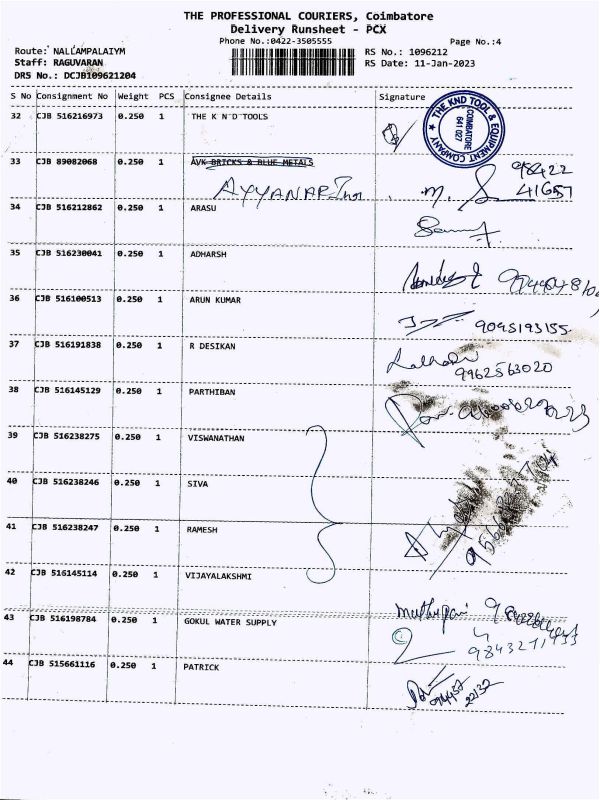 THE PROFESSIONAL COURIERS, Coimbatore
Delivery Runsheet - PCX
Phone No.:0422-3505555
Page No.:4
Route: NALLAMPALAIYM
RS No.: 1096212
Staff: RAGUVARAN
RS Date: 11-Jan-2023
DRS No.: DCJB109621204
S No Consignment No Weight PCS Consignee Details Signature
32 CJB 516216973 0.250 1 THE K N D TOOLS
THE KND TOOL & EQUIPMENT COMPANY
COIMBATORE
641 027
33 CJB 89082068 0.250 1 AVK BRICKS & BLUE METALS
98422
41657
34 CJB 516212862 0.250 1 ARASU
35 CJB 516230041 0.250 1 ADHARSH
36 CJB 516100513 0.250 1 ARUN KUMAR
9045193155
37 CJB 516191838 0.250 1 R DESIKAN
9962563020
38 CJB 516145129 0.250 1 PARTHIBAN
39 CJB 516238275 0.250 1 VISWANATHAN
40 CJB 516238246 0.250 1 SIVA
41 CJB 516238247 0.250 1 RAMESH
42 CJB 516145114 0.250 1 VIJAYALAKSHMI
43 CJB 516198784 0.250 1 GOKUL WATER SUPPLY
44 CJB 515661116 0.250 1 PATRICK